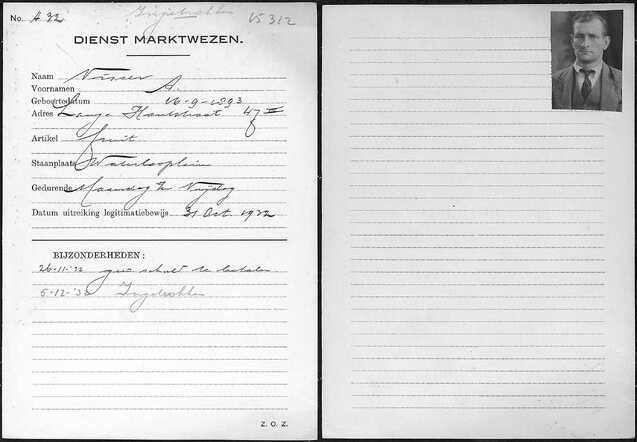 No. A 32 Ingetrokken 15312
DIENST MARKTWEZEN.
Naam Visser
Voornamen A.
Geboortedatum 16-9-1893
Adres Lange Houtstraat 47 II
Artikel fruit
Staanplaats Waterlooplein
Gedurende Maandag t/m Vrijdag
Datum uitreiking legitimatiebewijs 31 Oct. 1922
BIJZONDERHEDEN:
26-11-32 schuld te betalen
6-12-32 Ingetrokken
Z. O. Z.